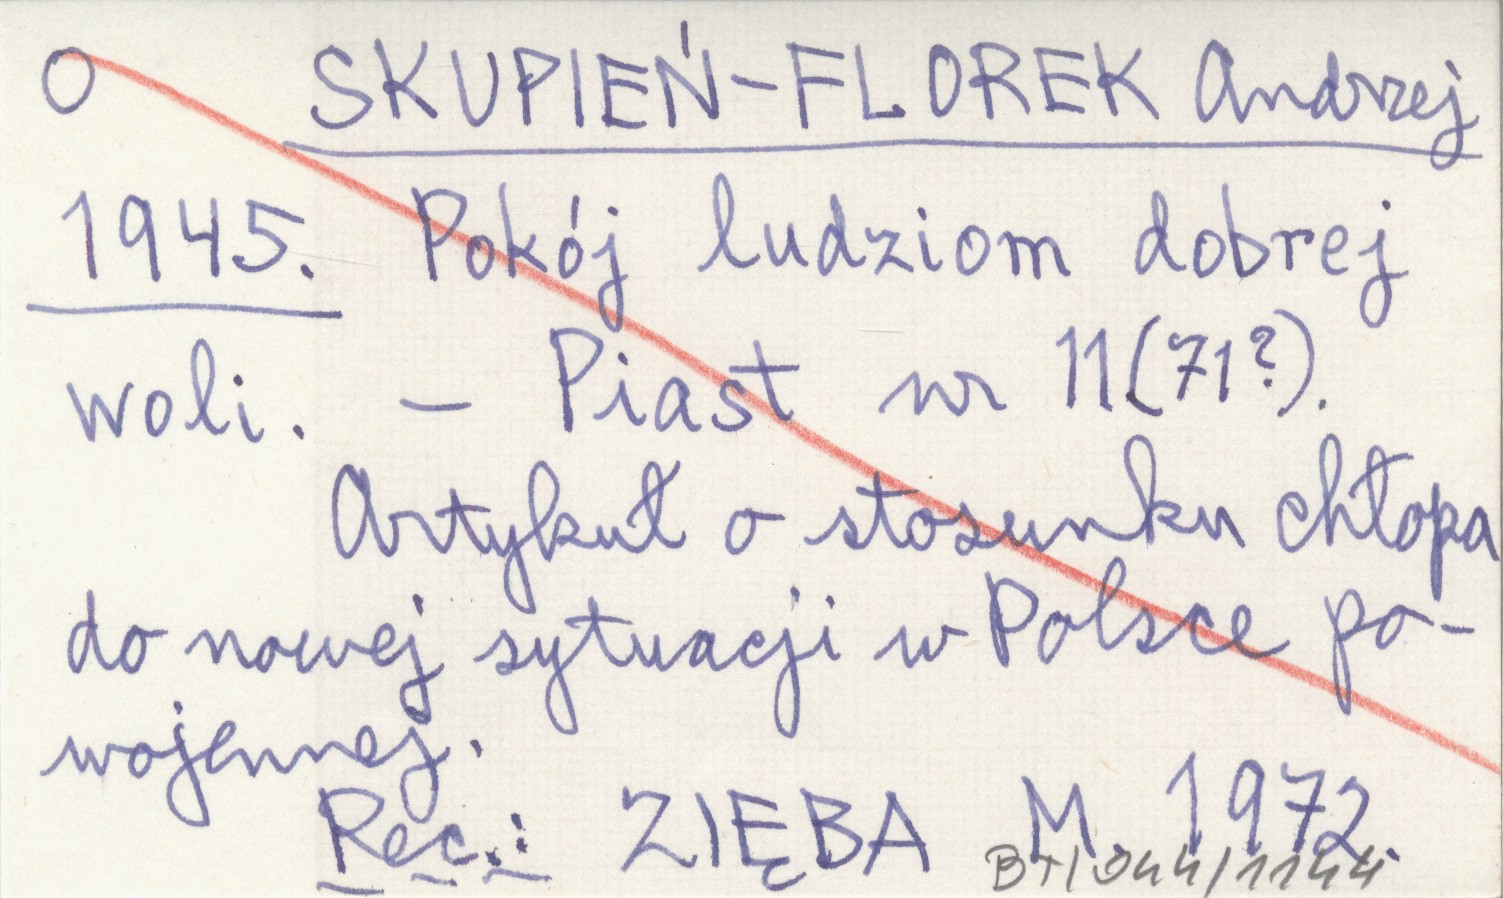 O SKUPIEŃ-FLOREK Andrzej
1945. Pokój ludziom dobrej
woli. – Piast nr 11(71?).
Artykuł o stosunku chłopa
do nowej sytuacji w Polsce po-
wojennej.
Rec.: ZIĘBA M. 1972.
BT/044/1144